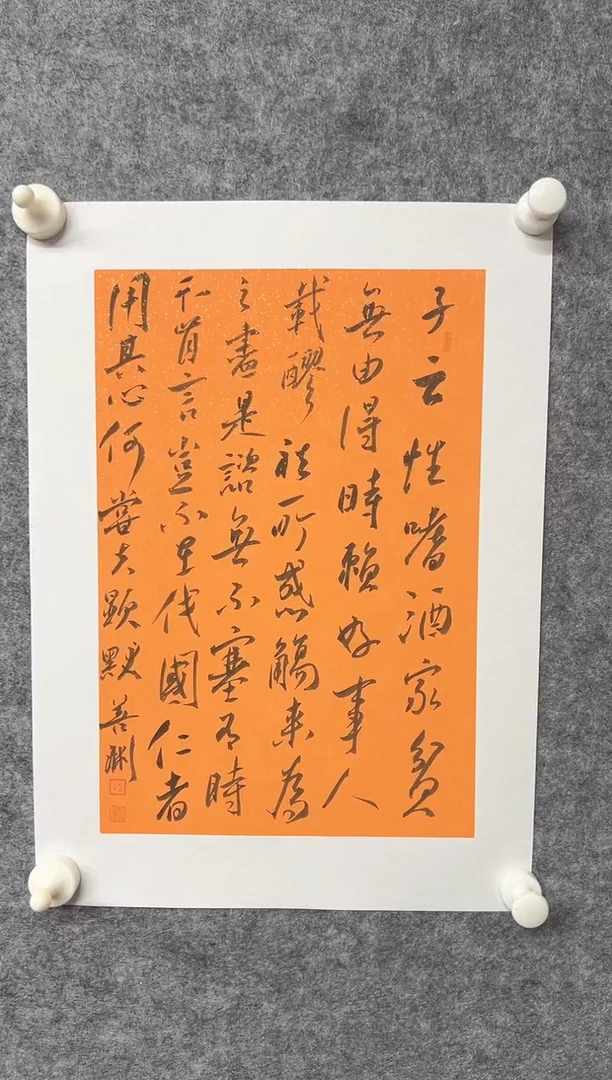 子云性嗜酒家貧
無由得時賴好事人
載醪祛所惑觴来為
之盡是諮無不塞有時
不肯言豈不在伐國仁者
用其心何嘗失顯默 善